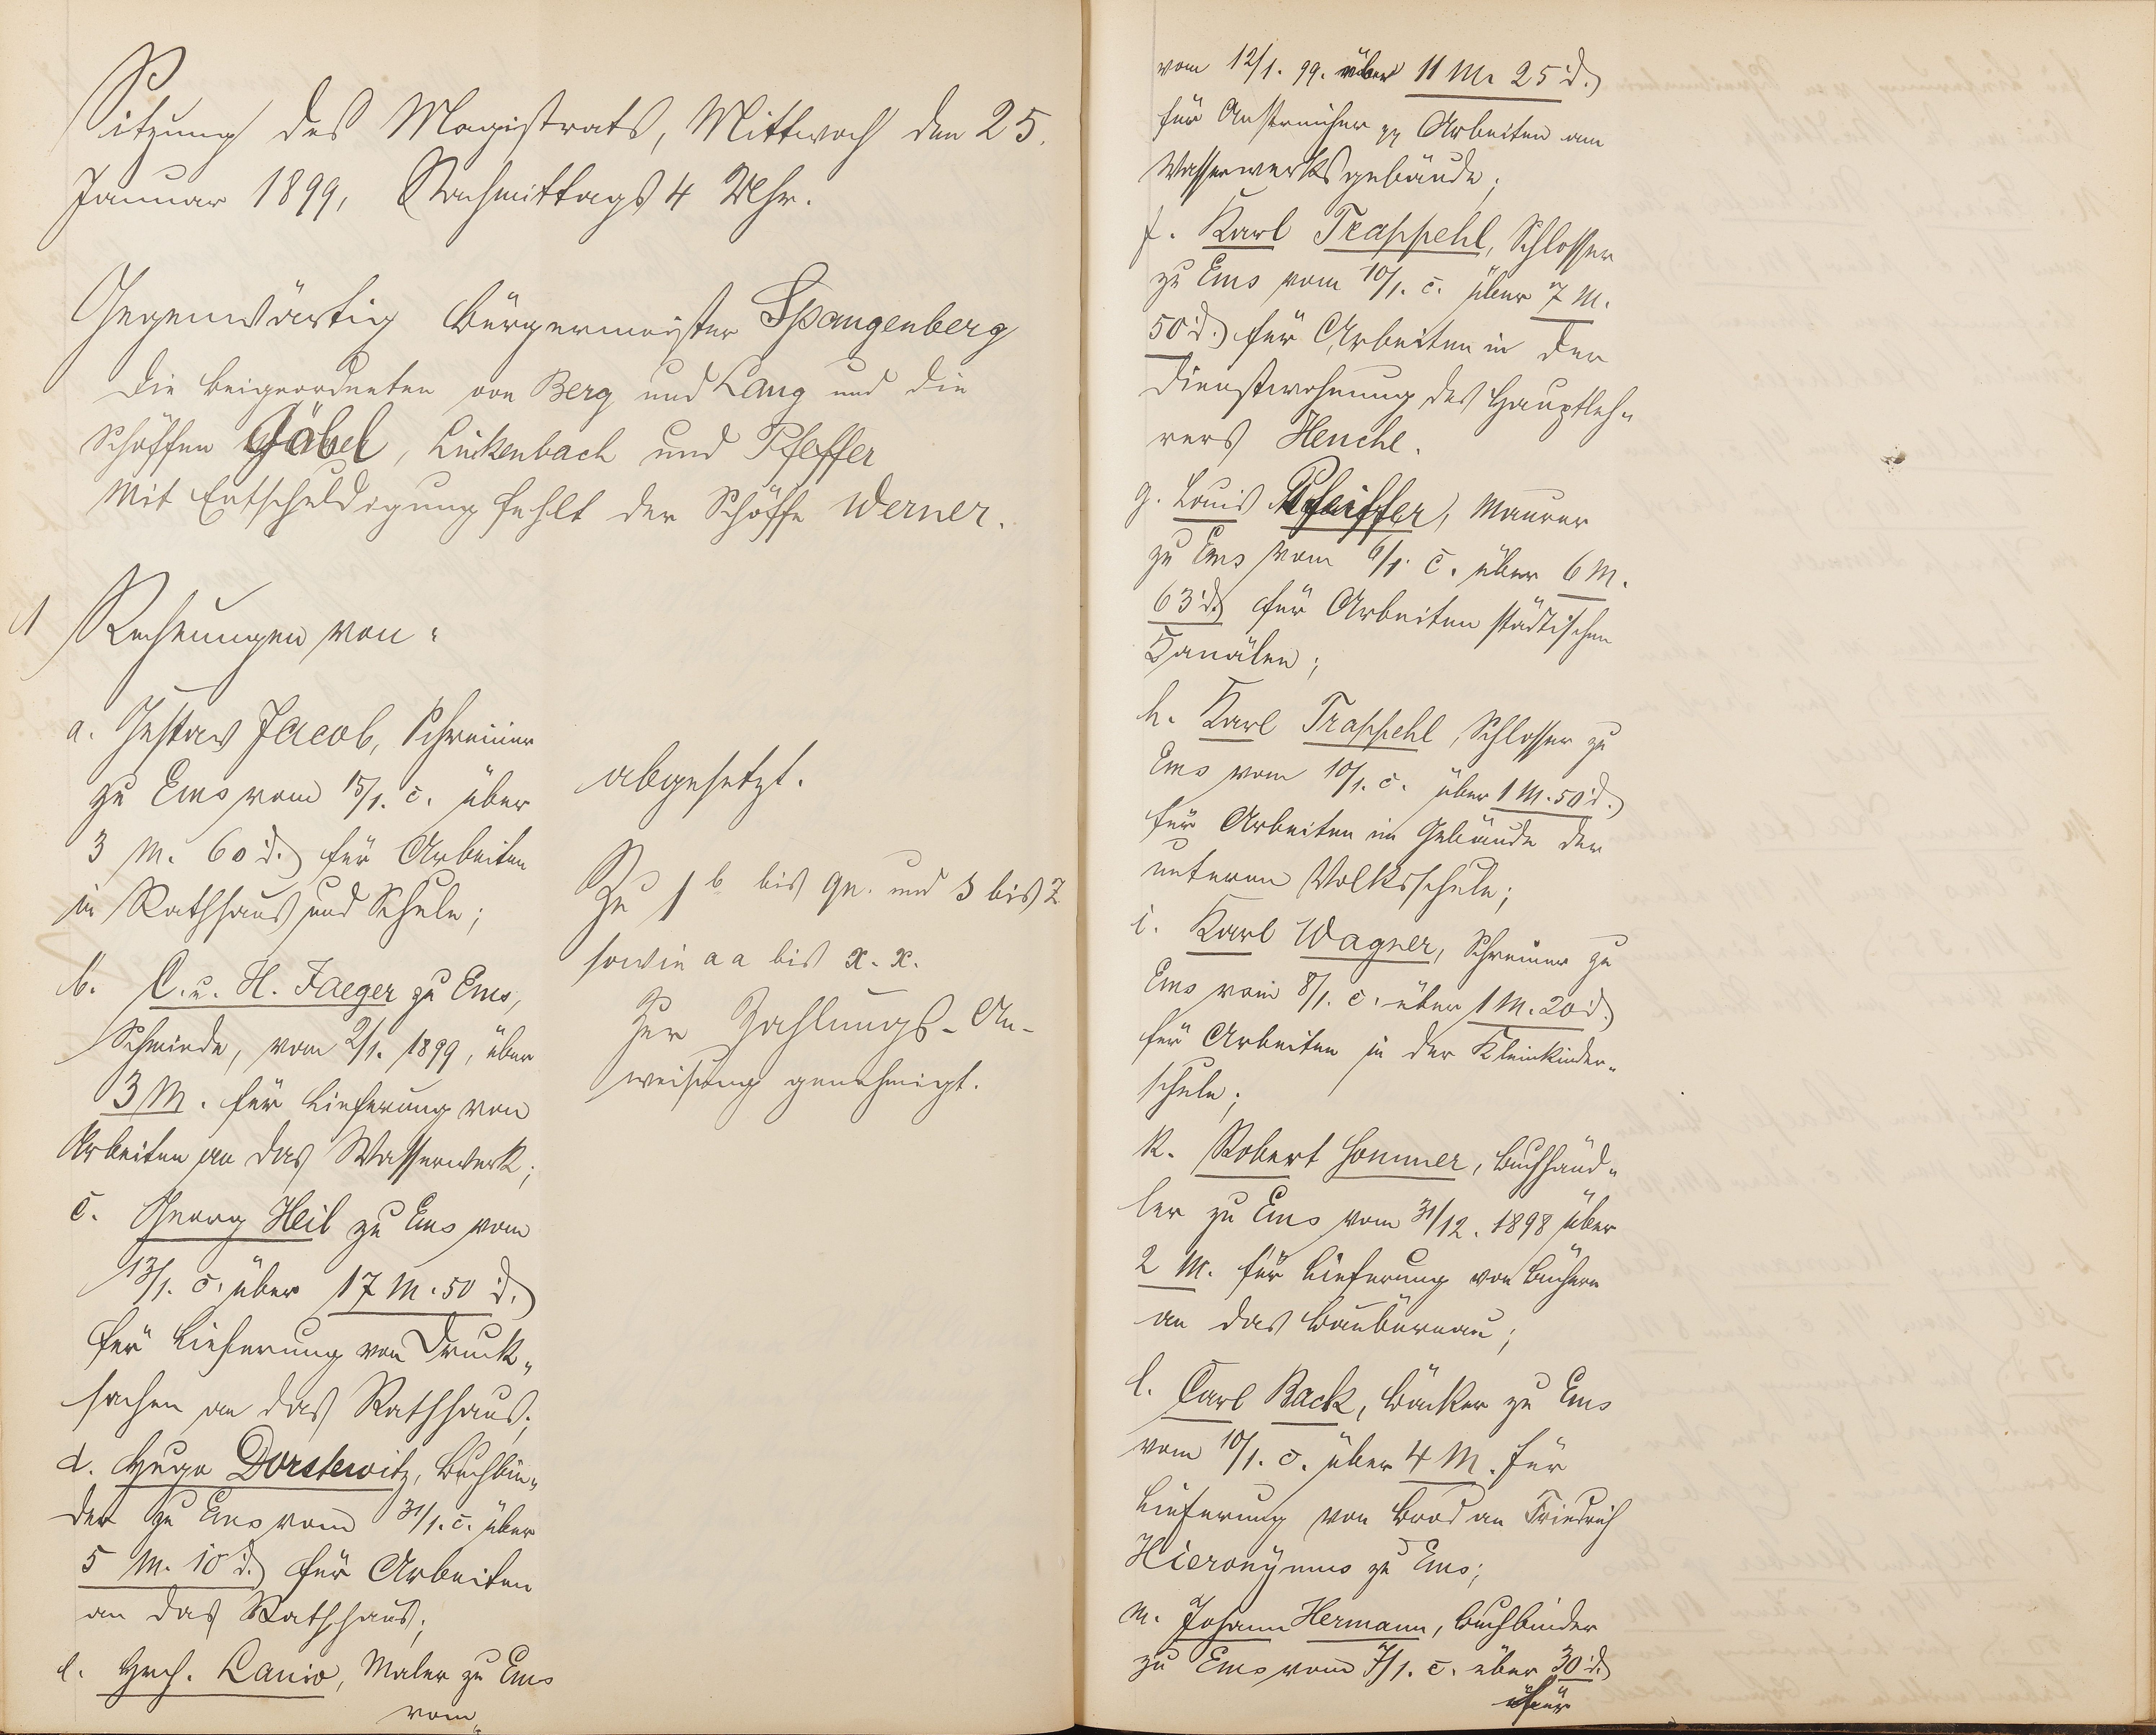 Sitzung des Magistrats, Mittwoch den 25.
Januar 1899, Nachmittags 4 Uhr.
Gegenwärtig Bürgermeister Spangenberg
die Beigeordneten von Berg und Lang und die
Schöffen Göbel, Linkenbach und Pfeffer
Mit Entschuldigung fehlt der Schöffe Werner.
1 Rechnungen von:
a. Gustav Jacob, Schreiner
zu Ems vom 15/1. c. über
3 M. 60 d. für Arbeiten
in Rathhaus und Schule;
b. C. u. H. Jaeger zu Ems,
Schmiede, vom 2/1. 1899, über
3 M. für Lieferung von
Arbeiten an das Wasserwerk;
c. Georg Heil zu Ems vom
13/1. c. über 17 M. 50 d.
für Lieferung von Druck„
sachen an das Rathhaus;
d. Hugo Dorstewitz, Buchbin„
der zu Ems vom 31/1. c. über
5 M. 10 d. für Arbeiten
an das Rathhaus;
e. Hrch. Lanio, Maler zu Ems
vom„
abgesetzt.
Zu 1 b bis qu. und 3 bis Z
sowie aa bis x.x.
Zur Zahlungs-An-
weisung genehmigt.
vom 12/1. 99. über 11 M. 25 d.
für Anstreicher pp Arbeiten am
Wasserwerksgebäude;
f. Karl Trappehl, Schlosser
zu Ems vom 10/1. c. über 7 M.
50 d. für Arbeiten in der
Dienstwohnung des Hauptleh„
rers Henche.
g. Louis Pfeiffer, Maurer
zu Ems vom 6/1. c. über 6 M.
63 d. für Arbeiten städtischen
Kanälen;
h. Karl Trappehl, Schlosser zu
Ems vom 10/1. c. über 1 M. 50 d.
für Arbeiten im Gebäude der
unteren Volksschule;
i. Karl Wagner, Schreiner zu
Ems vom 8/1. c. über 1 M. 20 d.
für Arbeiten in der Kleinkinder„
schule;
k. Robert Sommer, Buchhänd„
ler zu Ems vom 31/12. 1898 über
2 M. für Lieferung von Büchern
an das Baubüreau;
l. Carl Back, Bäcker zu Ems
vom 10/1. c. über 4 M. für
Lieferung von Brod an Friedrich
Hieronÿmus zu Ems;
m. Johann Hermann, Buchbinder
zu Ems vom 7/1. c. über 30 d.
für